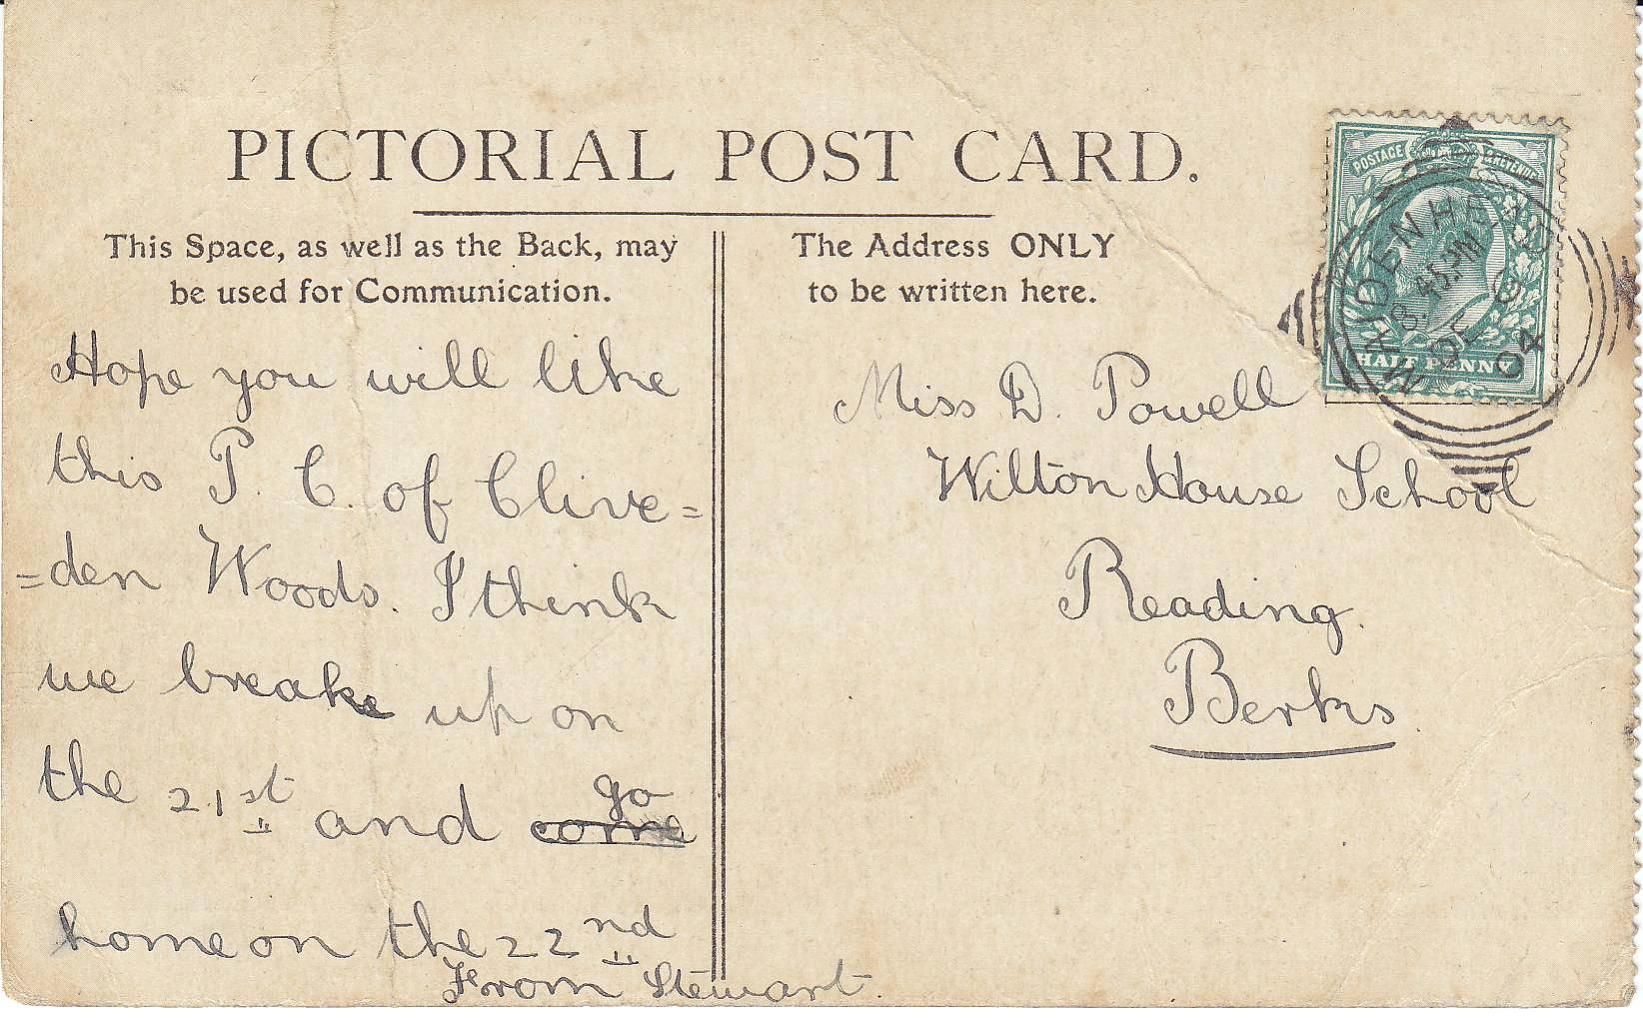 PICTORIAL POST CARD.
This Space, as well as the Back, may
be used for Communication.
Hope you will like
this P. C. of Clive=
=den Woods. I think
we break up on
the 21st and go
come
home on the 22nd
From Stewart.
The Address ONLY
to be written here.
Miss D. Powell
Wilton House School
Reading.
Berks
POSTAGE & REVENUE
HALF PENNY
MAIDENHEAD
8.45 PM
DE 6
04